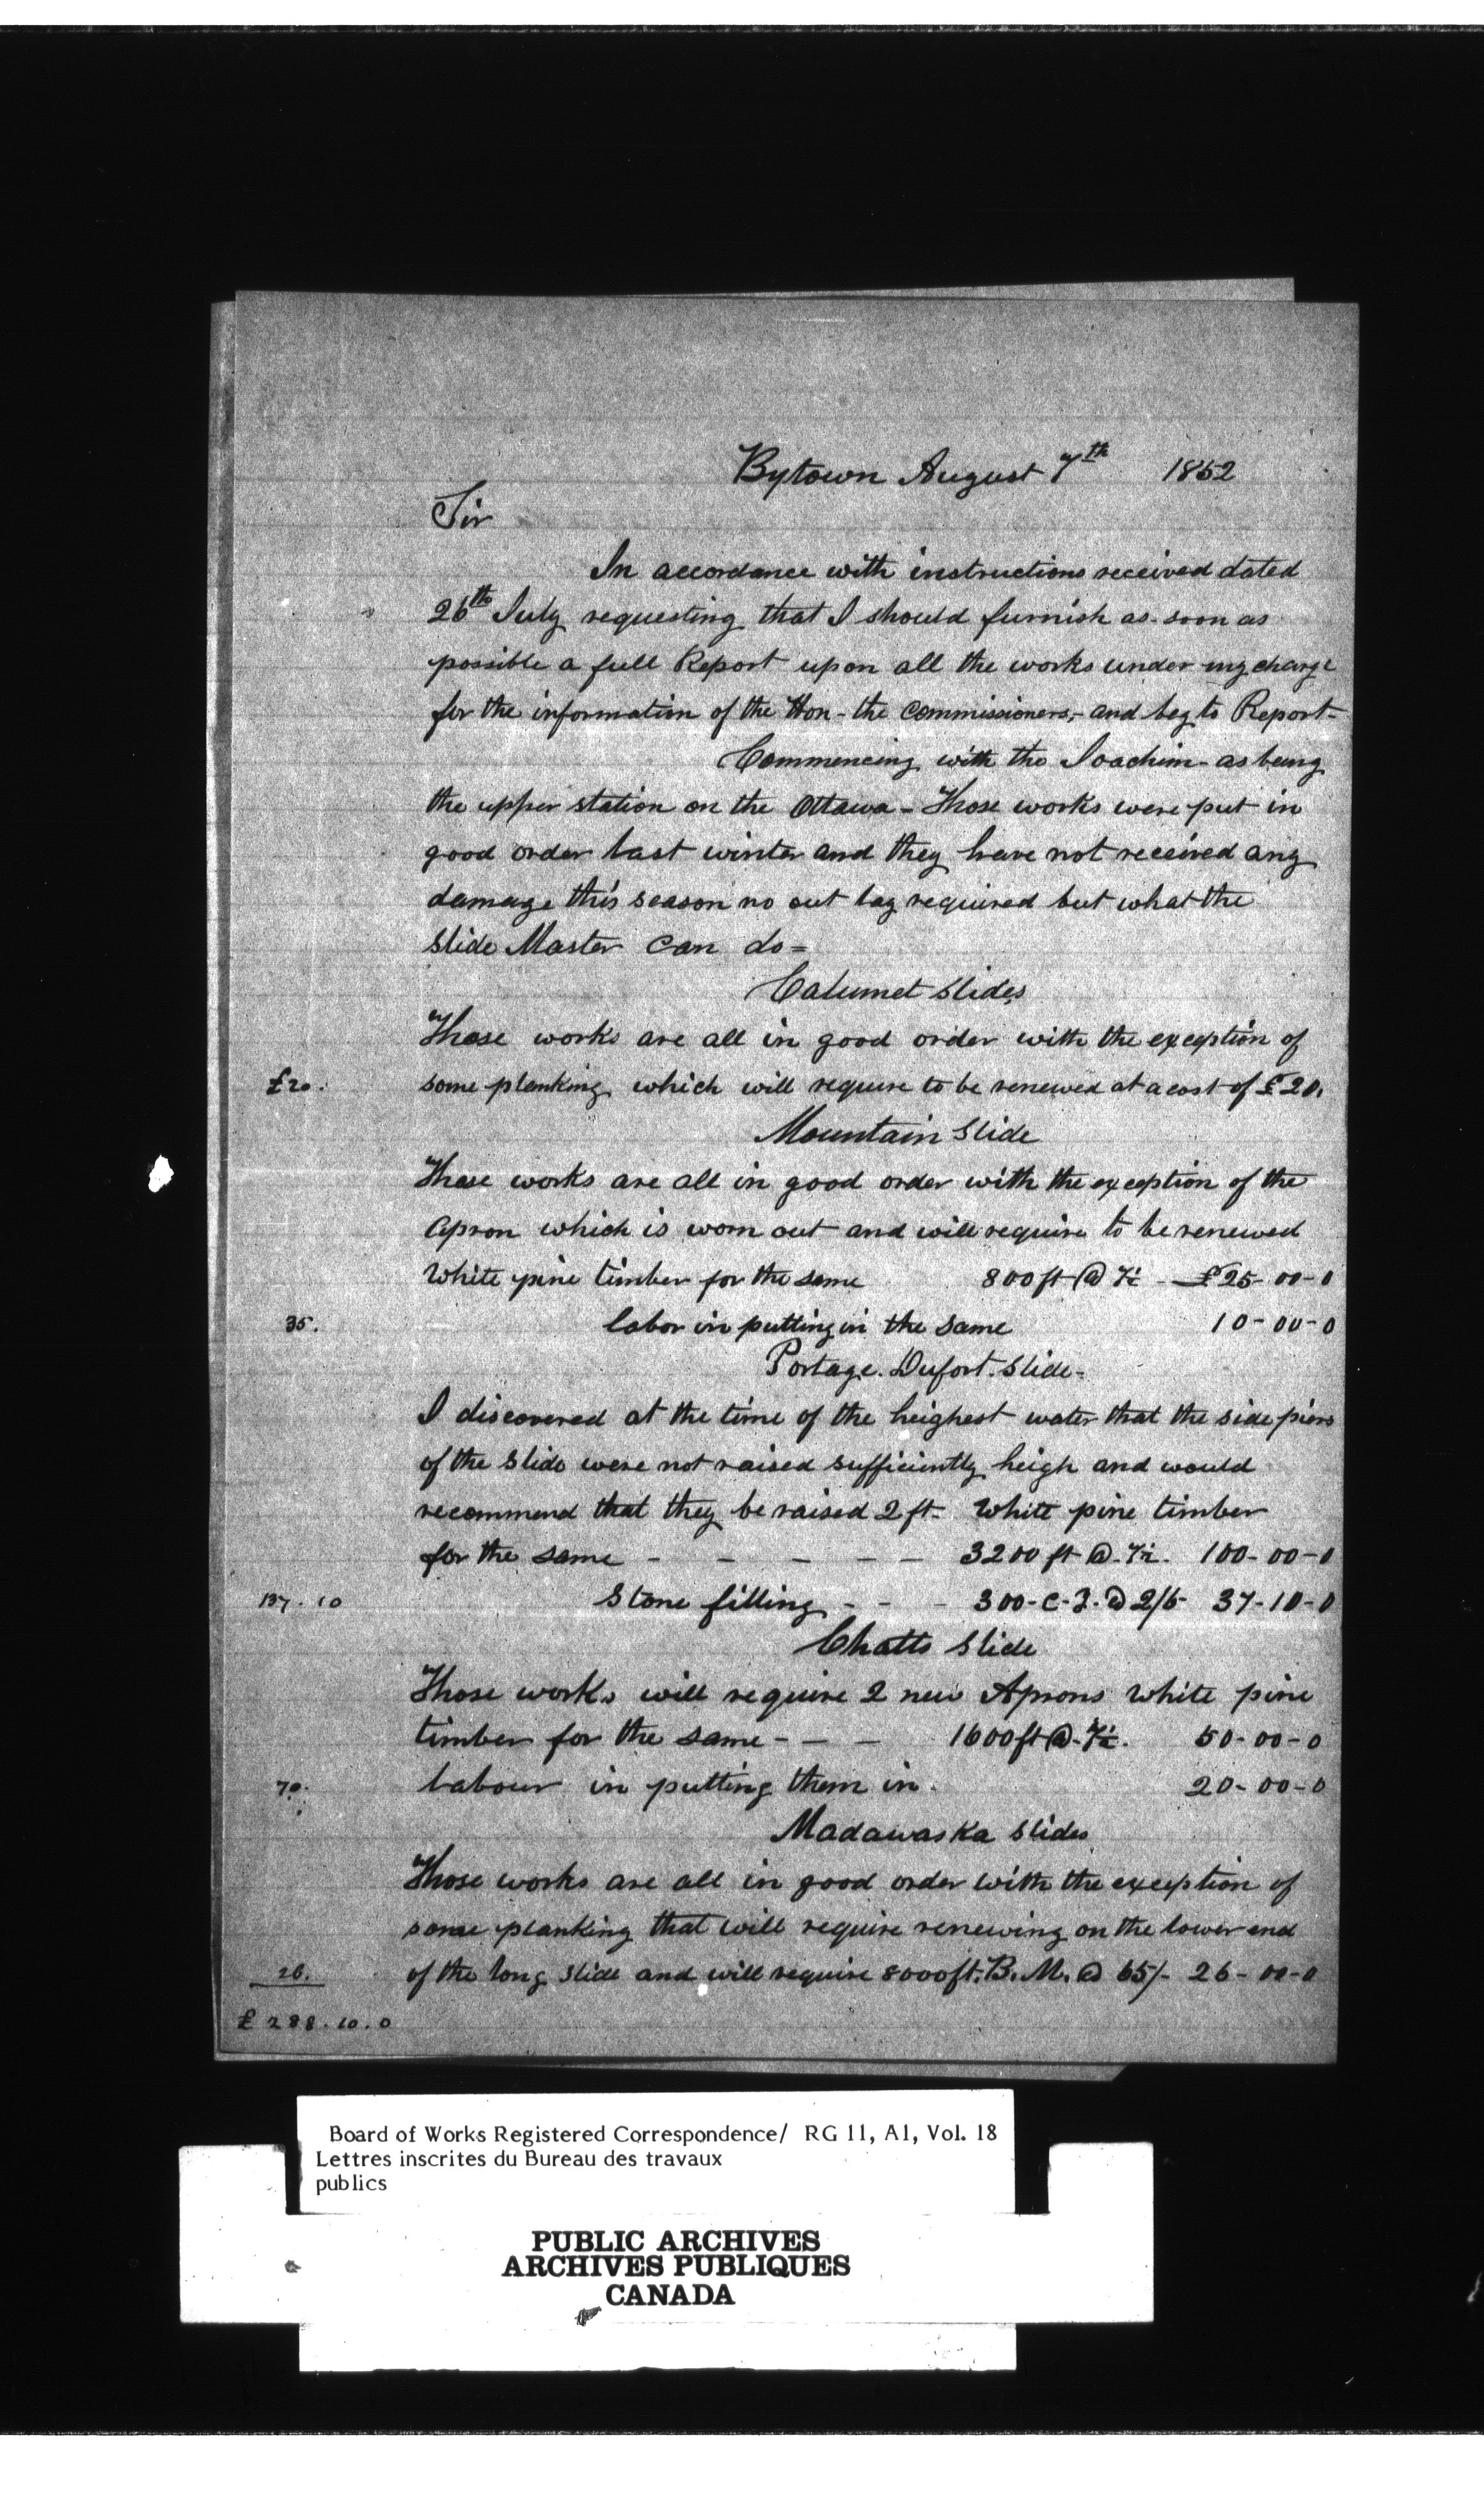 Bytown August 7th 1852
Sir
In accordance with instructions received dated
26th July requesting that I should furnish as soon as
possible a full Report upon all the works under my charge
for the information of the Hon - the Commissioners,- and beg to Report-
Commencing with the Joachim - as being
the upper station on the Ottawa - Those works were put in
good order last winter and they have not received any
damage this season no out lay required but what the
Slide Master can do =
Calumet Slides
Those works are all in good order with the exception of
£20. some planking which will require to be renewed at a cost of £20.
Mountain Slide
These works are all in good order with the exception of the
Apron which is worn out and will require to be renewed
White pine timber for the same 800 ft @ 7½ - £25-00-0
35. labor in putting in the same 10-00-0
Portage. Dufort. Slide-
I discovered at the time of the heighest water that the side piers
of the Slide were not raised sufficiently heigh and would
recommend that they be raised 2 ft - White pine timber
for the same - - - - - 3200 ft @ 7½. 100-00-0
137.10 Stone filling - - - 300-C-Y-@ 2/6- 37-10-0
Chatts Slide
Those works will require 2 new Aprons White pine
timber for the same - - - 1600 ft @ 7½. 50-00-0
70. labour in putting them in. 20-00-0
Madawaska Slides
Those works are all in good order with the exception of
some planking that will require renewing on the lower end
26. of the long Slide and will require 8000 ft. B. M. @ 65/- 26-00-0
£ 288.10.0
Board of Works Registered Correspondence/ RG 11, A1, Vol. 18
Lettres inscrites du Bureau des travaux
publics
PUBLIC ARCHIVES
ARCHIVES PUBLIQUES
CANADA